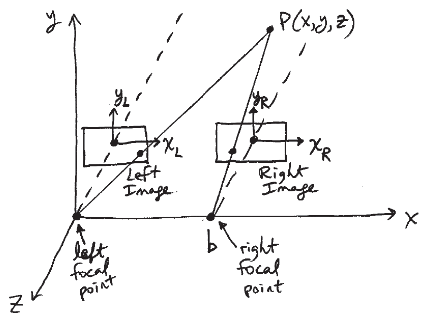 y
P(x,y,z)
yL
xL
Left
Image
yR
xR
Right
Image
x
b
left
focal
point
right
focal
point
z